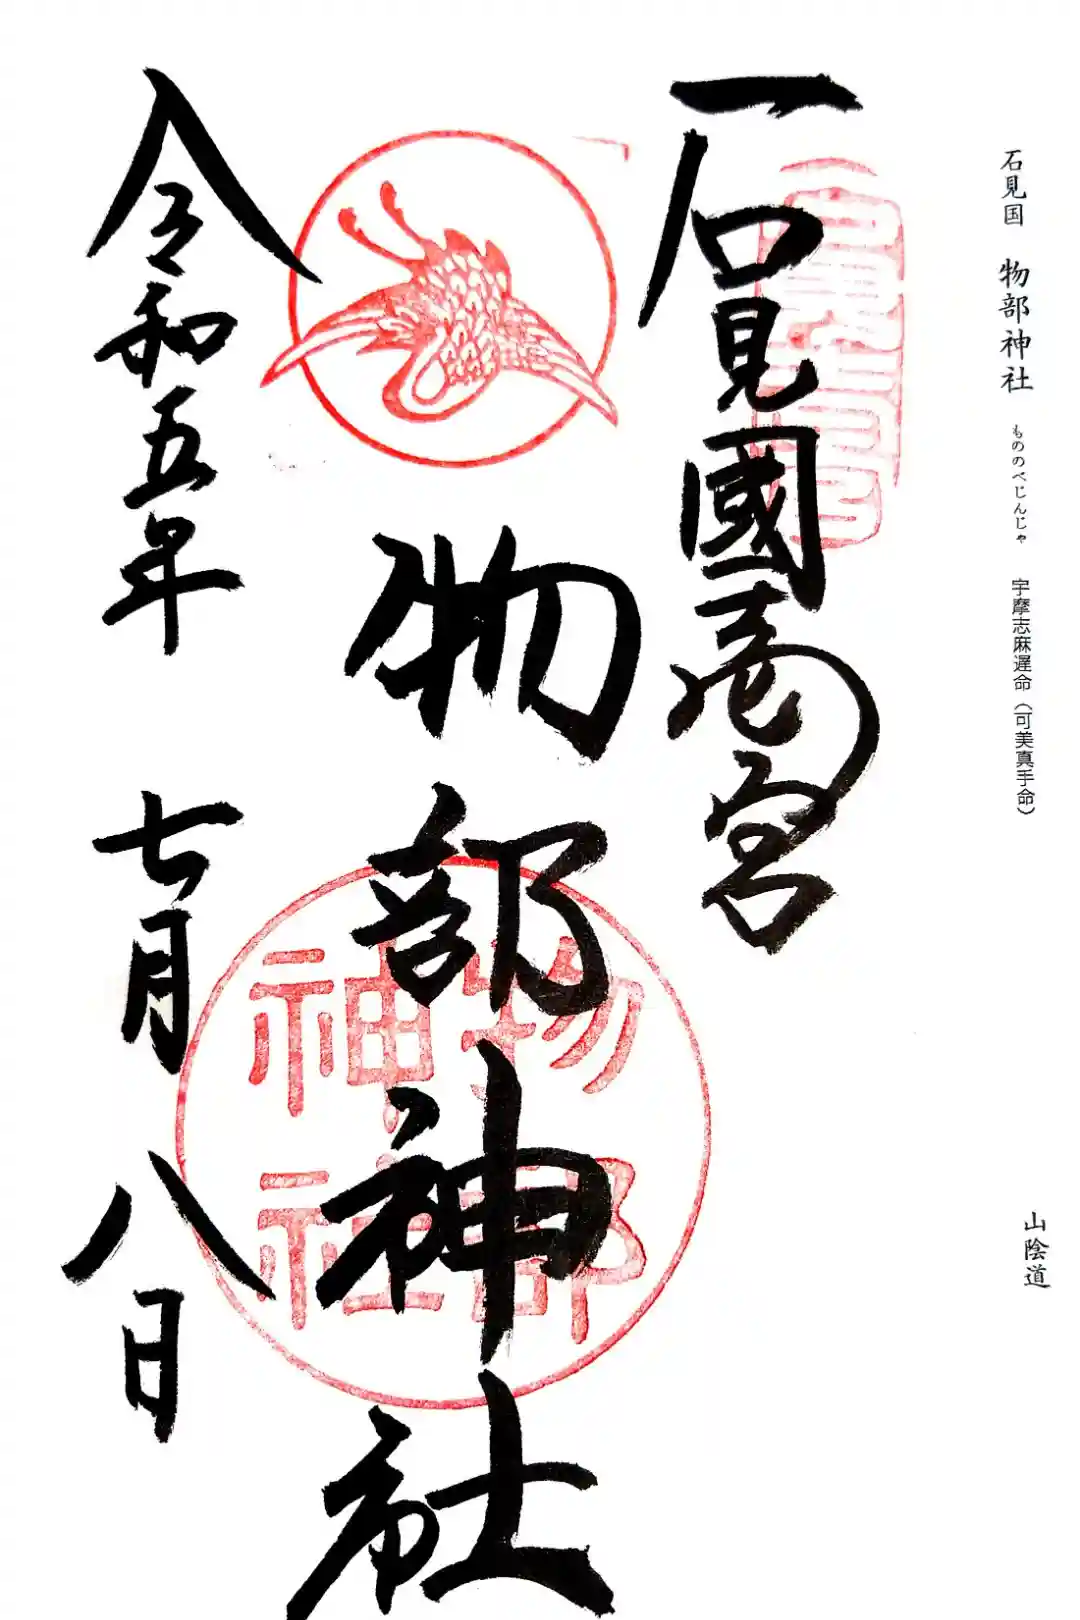 石見国 物部神社 もののべじんじゃ 宇摩志麻遅命（可美真手命）
山陰道
石見國壱宮
物部神社
令和五年 七月 八日
物部
神社